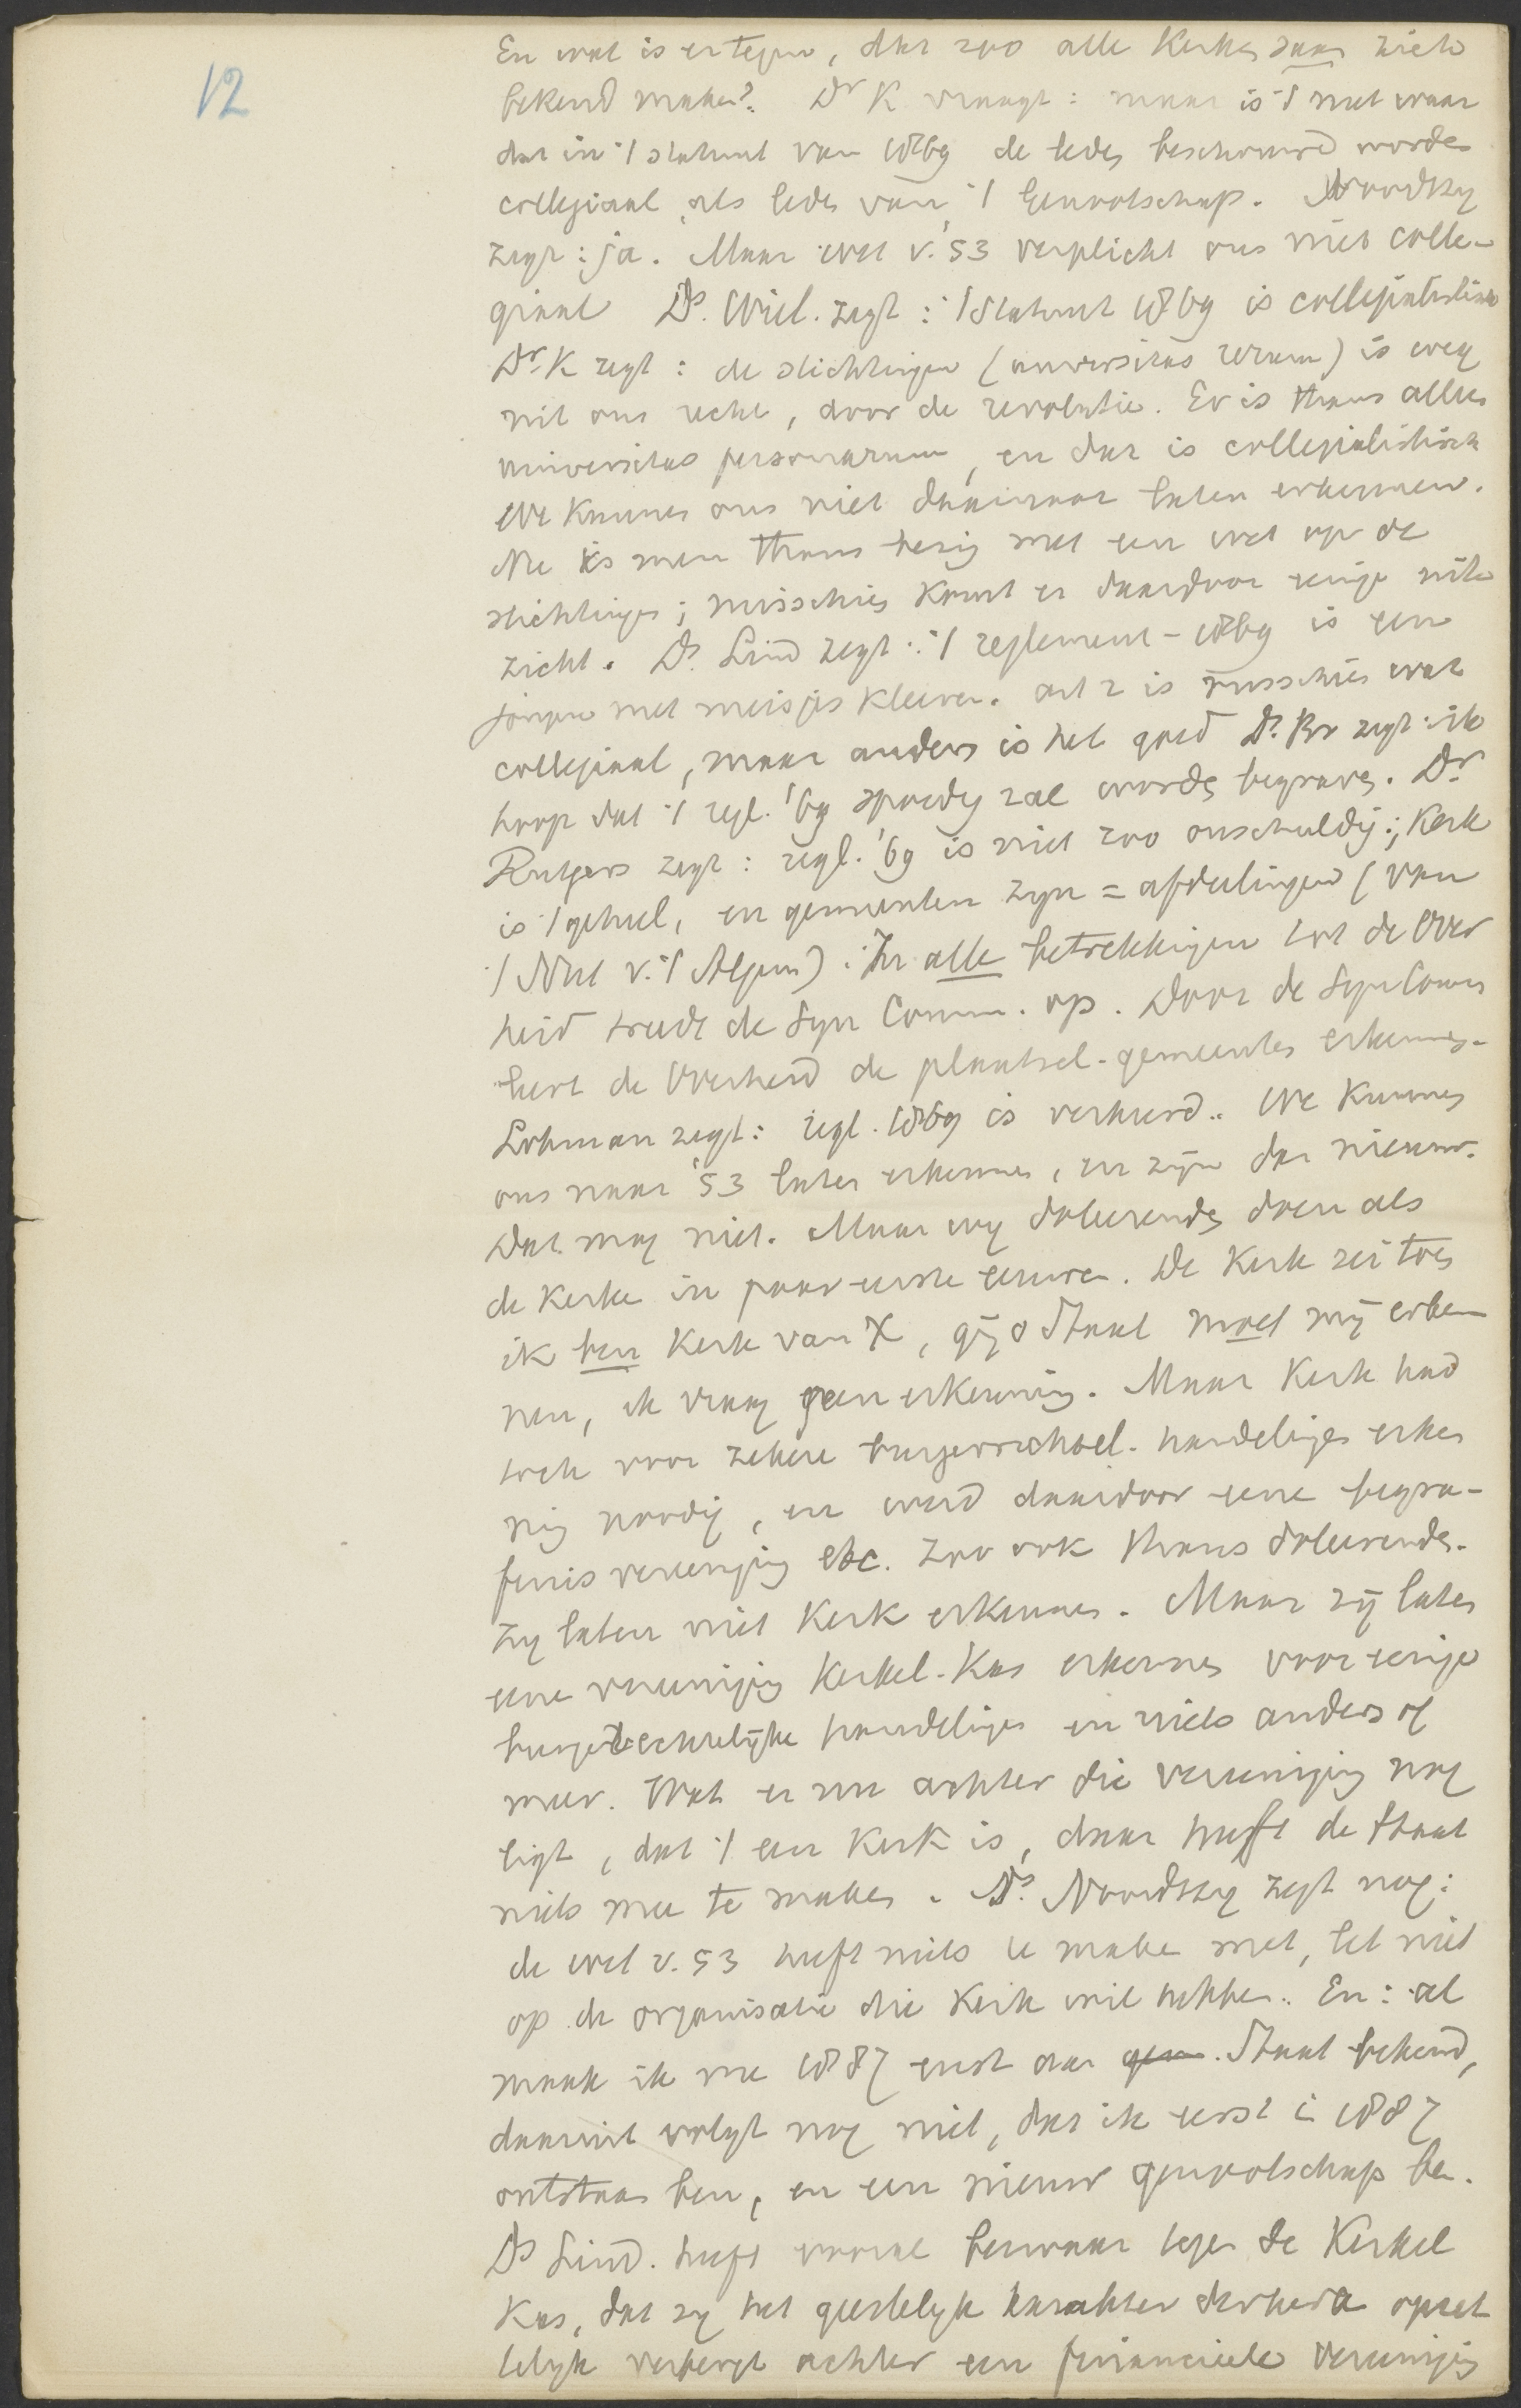 12
En wat is er tegen, dat zoo alle Kerken saam zich
bekend maken? Dr K vraagt: maar is 't niet waar
dat in 't statuut van 1869 de leden beschouwd worden
collegiaal, als leden van 't Genootschap. Noordzy
zegt: ja. Maar wet v. '53 verplicht ons niet colle-
giaal Ds. Wiel. zegt: 't Statuut 1869 is collegialistisch
Dr. K zegt: de stichtingen (universitas rerum) is weg
uit ons recht, door de revolutie. Er is thans alleen
universitas personarum, en dat is collegialistisch
We kunnen ons niet daarnaar laten erkennen.
Nu is men thans bezig met een wet op de
stichtingen; misschien komt er daardoor eenige uit-
zicht. Ds. Lind zegt: 't reglement-1869 is een
jongen met meisjes kleeren. art 2 is misschien wat
collegiaal, maar anders is het goed Ds. Br zegt: ik
hoop dat 't regl. '69 spoedig zal worden begraven. Dr.
Rutgers zegt: regl. '69 is niet zoo onschuldig; Kerk
is 't geheel, en gemeenten zyn = afdeelingen (van
't Nut v. 't Algem). In alle betrekkingen tot de Over
heid treedt de Syn Comm. op. Door de Syn Comm
leert de Overheid de plaatsel. gemeenten erkennen.
Lohman zegt: regl. 1869 is verkeerd. We kunnen
ons naar '53 laten erkennen, en zijn dan nieuw.
Dat mag niet. Maar wy doleerenden doen als
de Kerken in paar eerste eeuwen. De Kerk zei toen
ik ben Kerk van X, gij o Staat moet mij erken
nen, ik vraag geen erkenning. Maar Kerk had
toch voor zekere burgerrechtel. handelingen erken
ning noodig, en werd daardoor eene begra-
fenis vereeniging etc. Zoo ook thans doleerenden.
Zy laten niet Kerk erkennen. Maar zij laten
eene vereeniging Kerkel. Kas erkennen voor eenige
burgerrechtelijke handelingen en niets anders of
meer. Wat er nu achter die vereeniging nog
ligt, dat 't een Kerk is, daar heeft de Staat
niets mee te maken. Ds. Noordzy zegt nog:
de wet v. 53 heeft niets te maken met, let niet
op de organisatie die Kerk wil hebben. En: al
maak ik me 1887 eerst aan gem. Staat bekend,
daaruit volgt nog niet, dat ik eerst in 1887
ontstaan ben, en een nieuw genootschap ben.
Ds Lind. heeft vooral bezwaar tegen de Kerkel
Kas, dat zy het geestelyk karakter der kerk opzet
telyk verbergt achter een financieele vereeniging